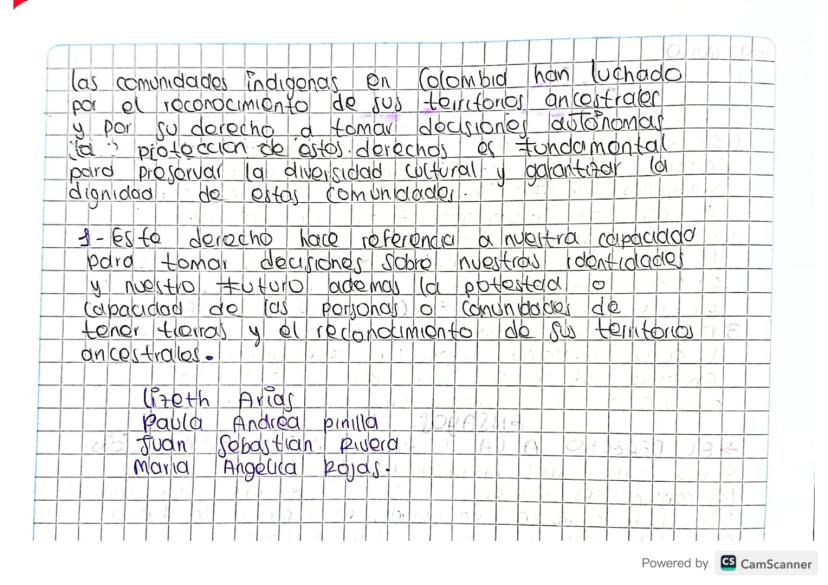 las comunidades indigenas en Colombia han luchado
por el reconocimiento de sus territorios ancestrales
y por su derecho a tomar decisiones autónomas
la protección de estos derechos es fundamental
para preservar la diversidad cultural y garantizar la
dignidad de estas comunidades.
1- Este derecho hace referencia a nuestra capacidad
para tomar decisiones sobre nuestras identidades
y nuestro futuro ademas la potestad o
capacidad de las personas o comunidades de
tener tierras y el reconocimiento de sus territorios
ancestrales.
Lizeth Arias
Paula Andrea pinilla
Juan Sebastian Rivera
Maria Angelica Rojas.
Powered by CS CamScanner